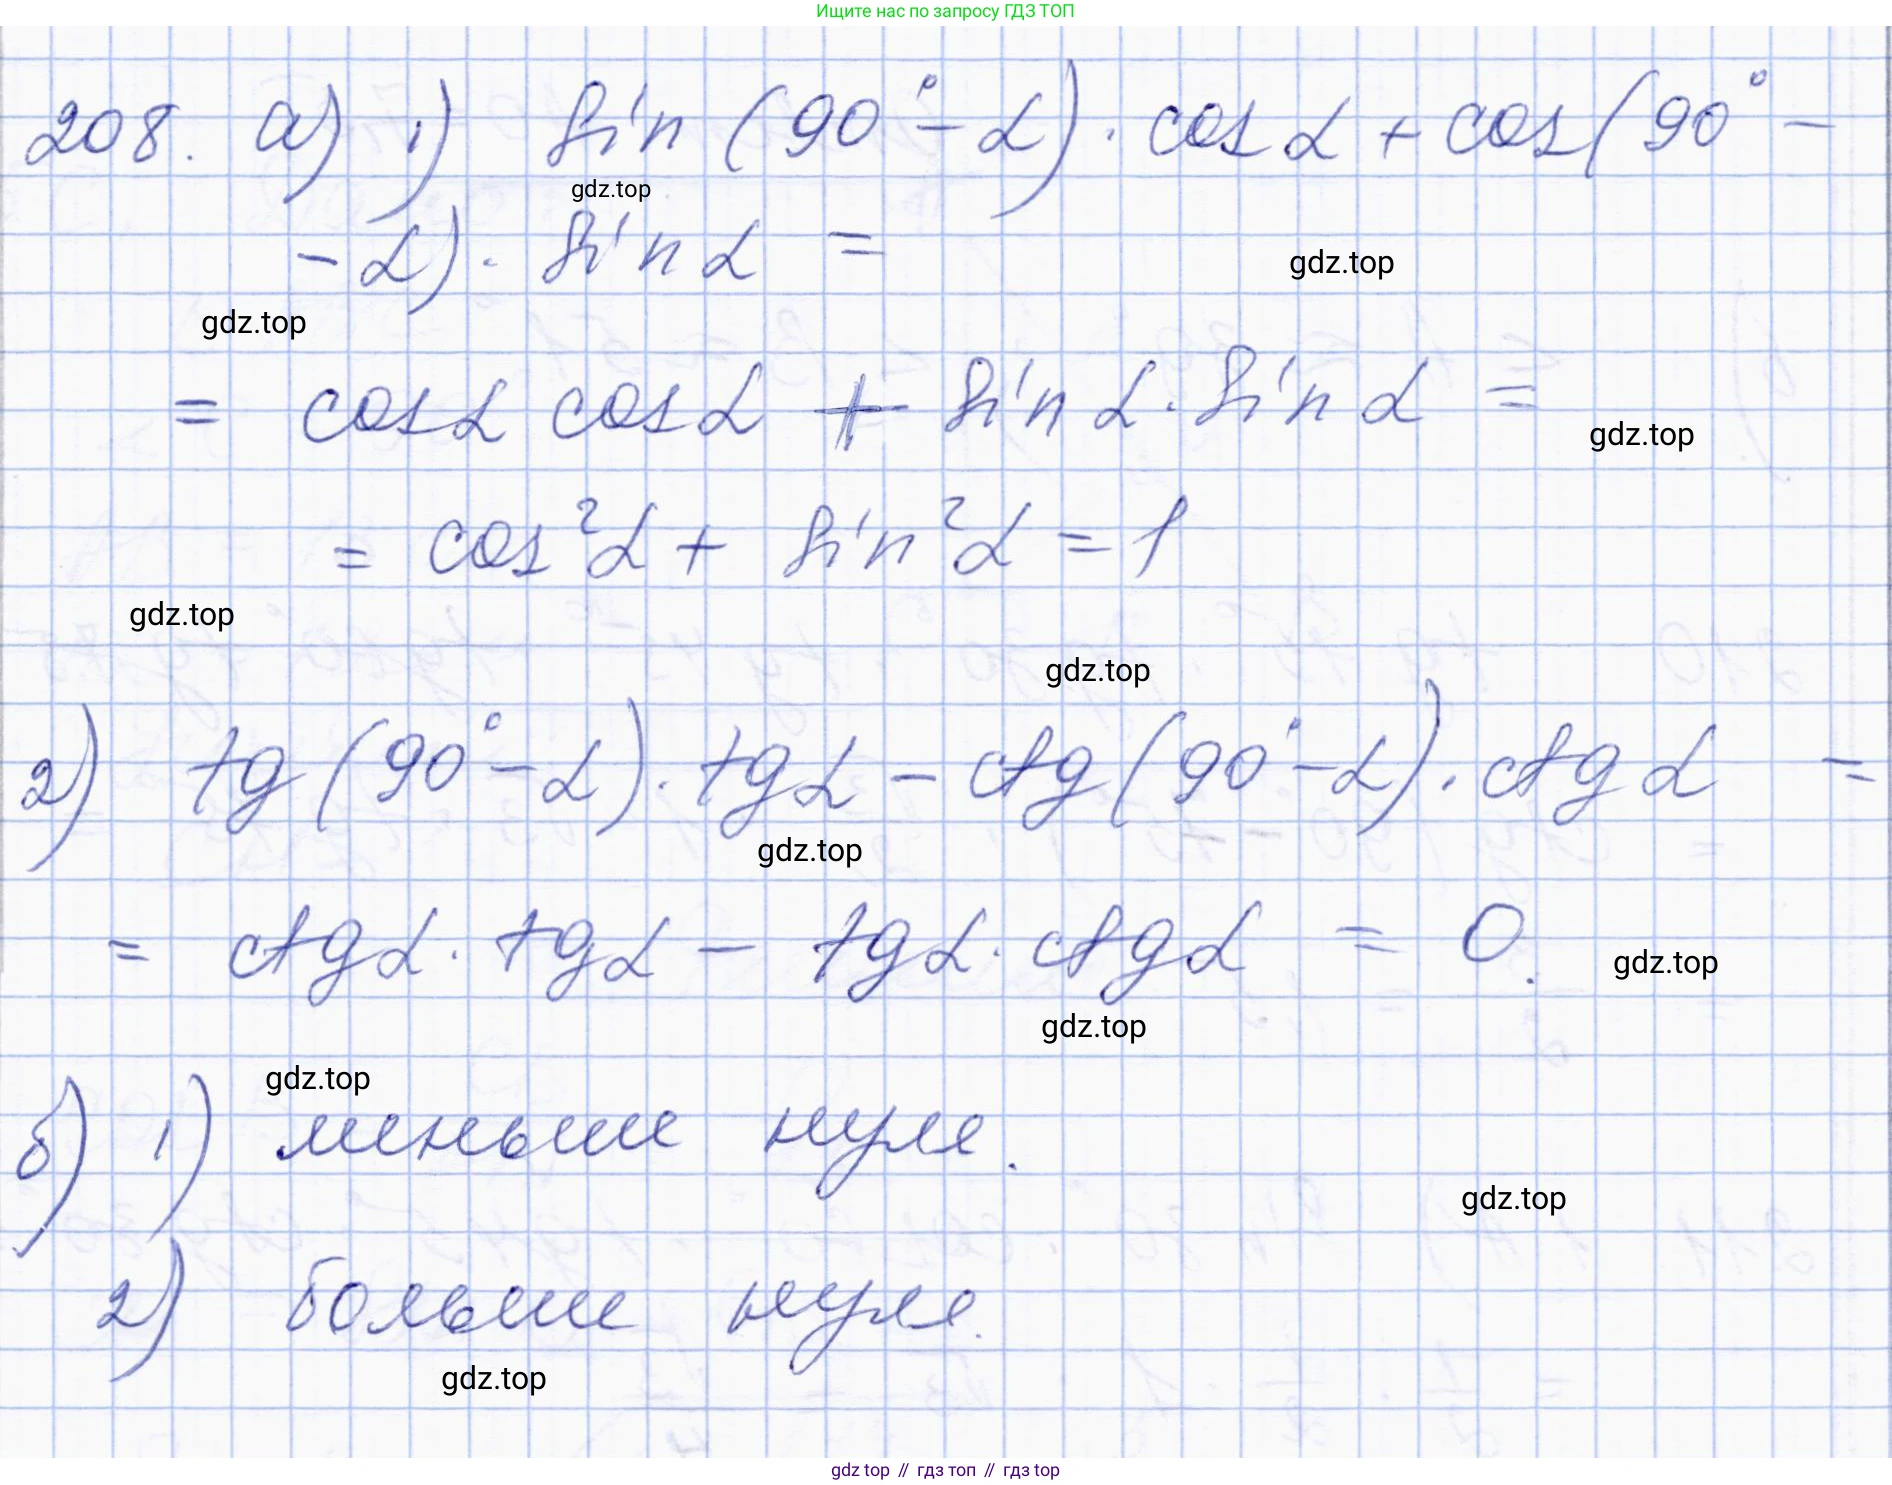 Ищите нас по запросу ГДЗ ТОП
208. а) 1) sin (90° - α) · cos α + cos (90° -
gdz.top
- α) · sin α =
gdz.top
gdz.top
= cos α cos α + sin α · sin α =
gdz.top
= cos² α + sin² α = 1
gdz.top
gdz.top
2) tg (90° - α) · tg α - ctg (90° - α) · ctg α =
gdz.top
= ctg α · tg α - tg α · ctg α = 0.
gdz.top
gdz.top
gdz.top
б) 1) меньше нуля.
gdz.top
2) больше нуля.
gdz.top
gdz top // гдз топ // гдз top